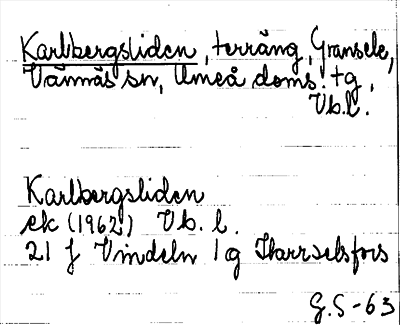 Karlbergsliden, terräng, Gransele,
Vännäs sn, Umeå doms. tg,
Vb.l.
Karlbergsliden
ek (1962) Vb. l.
21 J Vindeln 1 g Harrselsfors
G.S-63